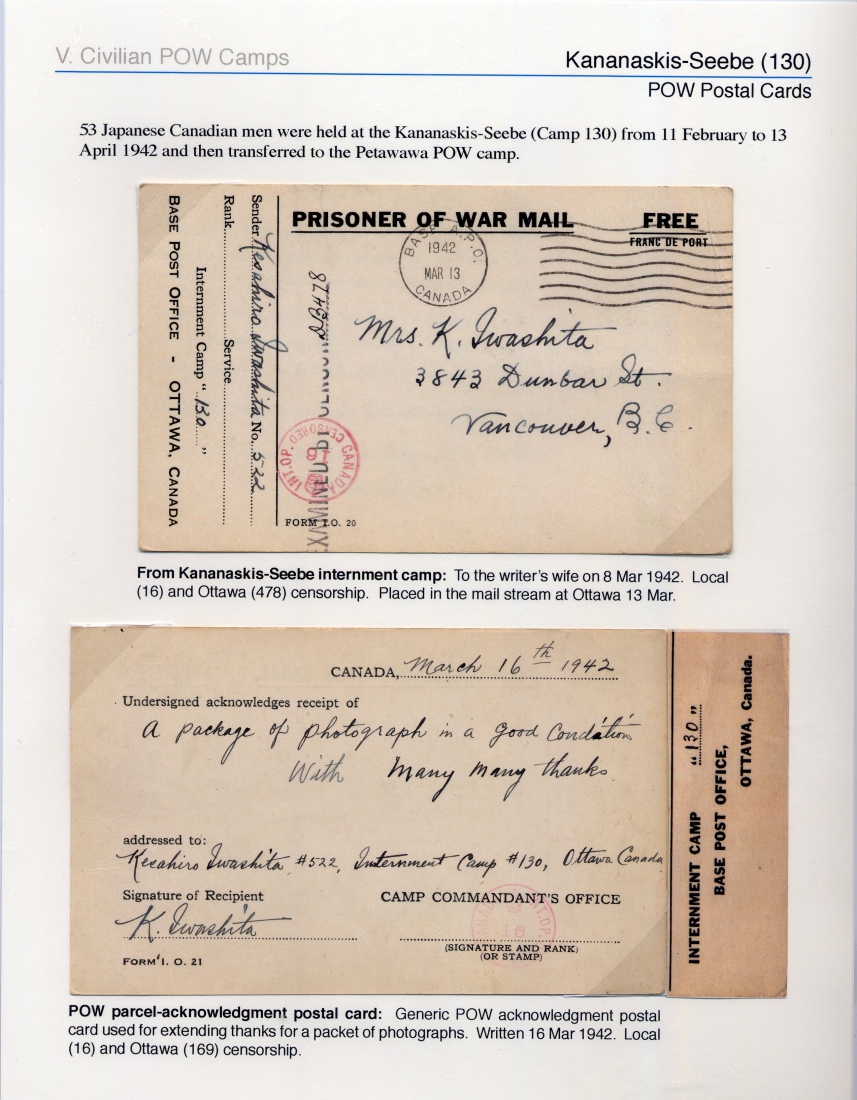 V. Civilian POW Camps
Kananaskis-Seebe (130)
POW Postal Cards
53 Japanese Canadian men were held at the Kananaskis-Seebe (Camp 130) from 11 February to 13
April 1942 and then transferred to the Petawawa POW camp.
PRISONER OF WAR MAIL
FREE
FRANC DE PORT
BASE A.P.O.
1942
MAR 13
CANADA
Mrs. K. Iwashita
3843 Dunbar St.
Vancouver, B.C.
Sender Kesahiro Iwashita No. 522
Rank Service
Internment Camp "130"
BASE POST OFFICE - OTTAWA, CANADA
478
CANADA CENSORED INT. OP.
16
FORM I.O. 20
From Kananaskis-Seebe internment camp: To the writer's wife on 8 Mar 1942. Local
(16) and Ottawa (478) censorship. Placed in the mail stream at Ottawa 13 Mar.
CANADA, March 16th 1942
Undersigned acknowledges receipt of
A package of photograph in a good condition
With Many many thanks.
addressed to:
Kesahiro Iwashita #522, Internment Camp #130, Ottawa Canada
Signature of Recipient
CAMP COMMANDANT'S OFFICE
K. Iwashita
(SIGNATURE AND RANK)
(OR STAMP)
FORM I. O. 21
INTERNMENT CAMP "130"
BASE POST OFFICE,
OTTAWA, Canada.
POW parcel-acknowledgment postal card: Generic POW acknowledgment postal
card used for extending thanks for a packet of photographs. Written 16 Mar 1942. Local
(16) and Ottawa (169) censorship.